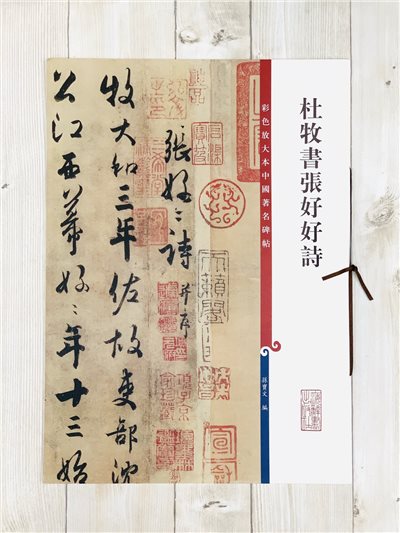 杜牧書張好好詩
彩色放大本中國著名碑帖
孫寶文 編
張好〻詩并序
牧大和三年佐故吏部沈
公江西幕好〻年十三始
天籟閣